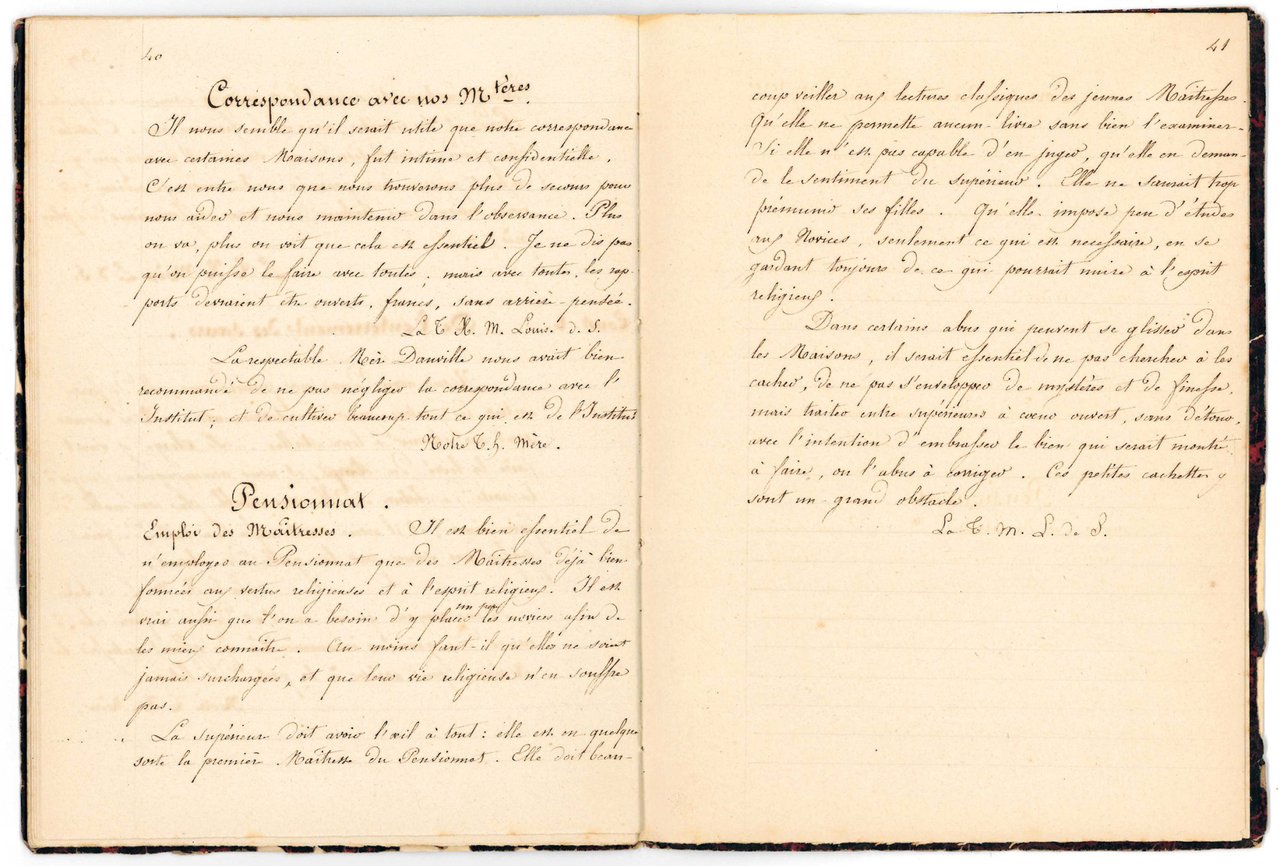 40
Correspondance avec nos Mtères.
Il nous semble qu'il serait utile que notre correspondance
avec certaines Maisons, fut intime et confidentielle.
C'est entre nous que nous trouverons plus de secours pour
nous aider et nous maintenir dans l'observance. Plus
on va, plus on voit que cela est essentiel. Je ne dis pas
qu'on puisse le faire avec toutes, mais avec toutes, les rap-
ports devraient etre ouverts, francs, sans arrière-pensée.
La T. H. M. Louise de S.
La respectable Mère Danville nous avait bien
recommandé de ne pas négliger la correspondance avec l'
Institut, et de cultiver beaucoup tout ce qui est de l'Institut
Notre T. h. Mère.
Pensionnat.
Emploi des Maîtresses. Il est bien essentiel de
n'employer au Pensionnat que des Maîtresses déjà bien
formées aux vertus religieuses et à l'esprit religieux. Il est
vrai aussi que l'on a besoin d'y placer un peu les novices afin de
les mieux connaître. Au moins faut-il qu'elles ne soient
jamais surchargées, et que leur vie religieuse n'en souffre
pas.
La supérieure doit avoir l'œil à tout : elle est en quelque
sorte la première Maîtresse du Pensionnat. Elle doit beau-
41
coup veiller aux lectures classiques des jeunes Maîtresses.
Qu'elle ne permette aucun livre sans bien l'examiner.
Si elle n'est pas capable d'en juger, qu'elle en deman-
de le sentiment du supérieur. Elle ne saurait trop
prémunir ses filles. Qu'elle impose peu d'études
aux Novices, seulement ce qui est necessaire, en se
gardant toujours de ce qui pourrait nuire à l'esprit
religieux.
Dans certains abus qui peuvent se glisser dans
les Maisons, il serait essentiel de ne pas chercher à les
cacher, de ne pas s'envelopper de mystères et de finesse,
mais traiter entre supérieures à cœur ouvert, sans détour,
avec l'intention d'embrasser le bien qui serait montré
à faire, ou l'abus à corriger. Ces petites cachettes y
sont un grand obstacle.
La T. M. L. de S.